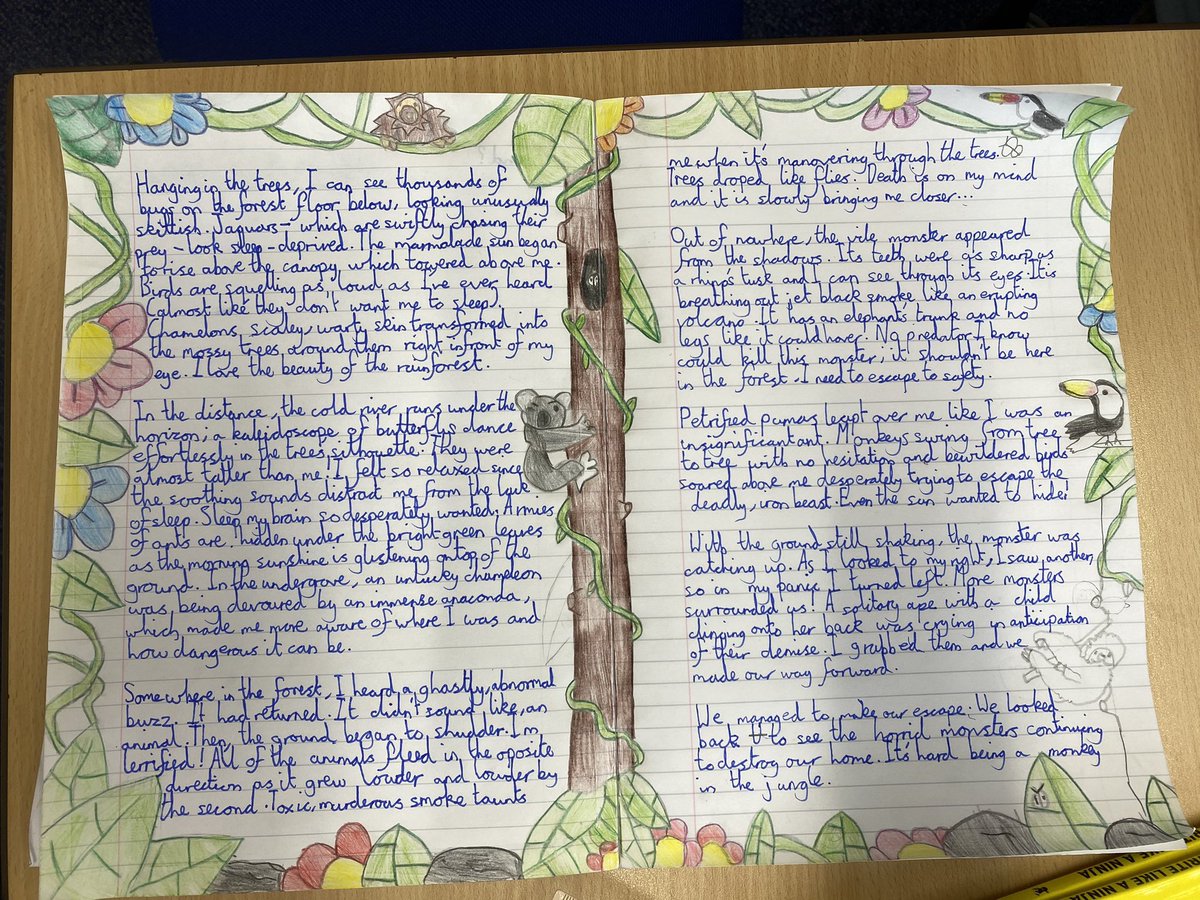 Hanging in the trees, I can see thousands of
bugs on the forest floor below, looking unusually
skittish. Jaguars - which are swiftly chasing their
prey - look sleep - deprived. The marmalade sun began
to rise above the canopy, which towered above me.
Birds are squelling as loud as I've ever heard
(almost like they don't want me to sleep).
Chamelons, scaley, warty skin transformed into
the mossy trees around them right infront of my
eye. I love the beauty of the rainforest.
In the distance, the cold river runs under the
horizon; a kaleidoscope of butterflys dance
effortlessly in the trees silhouette. They were
almost taller than me! I felt so relaxed since
the soothing sounds distract me from the lack
of sleep. Sleep my brain so desperately wanted. Armies
of ants are hidden under the bright green leaves
as the morning sunshine is glistening ontop of the
ground. In the undergrove, an unlucky chameleon
was being devoured by an immense anaconda,
which made me more aware of where I was and
how dangerous it can be.
Somewhere in the forest, I heard a ghastly, abnormal
buzz. It had returned. It didn't sound like an
animal. Then the ground began to shudder. I'm
terrified! All of the animals fleed in the oposite
direction as it grew louder and louder by
the second. Toxic, murderous smoke taunts
me when it's manovering through the trees.
Trees droped like flies. Death is on my mind
and it is slowly bringing me closer...
Out of nowhere, the vile monster appeared
from the shadows. Its teeth were as sharp as
a rhino's tusk and I can see through its eyes. It is
breathing out jet black smoke like an erupting
volcano. It has an elephants trunk and no
legs like it could hover. No predator I know
could kill this monster; it shouldn't be here
in the forest. I need to escape to safety.
Petrified pumas leapt over me like I was an
insignificant ant. Monkeys swing from tree
to tree with no hesitation and bewildered birds
soared above me desperately trying to escape the
deadly, iron beast. Even the sun wanted to hide!
With the ground still shaking, the monster was
catching up. As I looked to my right, I saw another,
so in my panic I turned left. More monsters
surrounded us! A solitary ape with a child
clinging onto her back was crying in anticipation
of their demise. I grabbed them and we
made our way forward.
We managed to make our escape. We looked
back to see the horrid monsters continuing
to destroy our home. It's hard being a monkey
in the jungle.
WRITE LIKE A NINJA